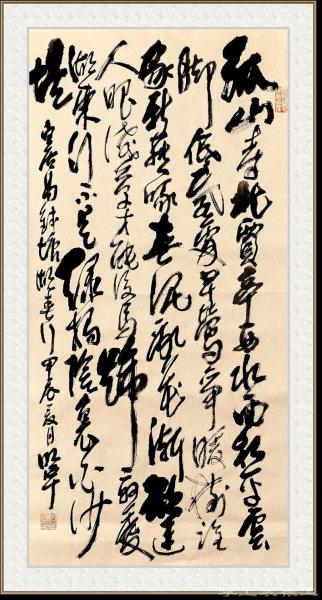 孤山寺北賈亭西水面初平雲
脚低幾處早鶯爭暖樹誰
家新燕啄春泥亂花漸欲迷
人眼淺草才能没馬蹄最愛
湖東行不足緑楊陰裏白沙
堤 白居易錢塘湖春行甲辰夏月